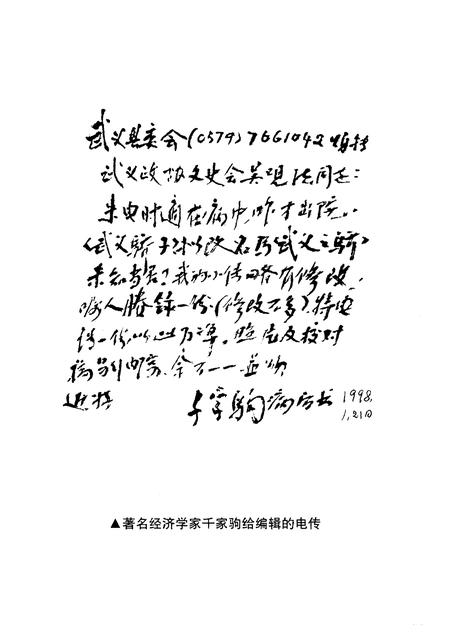 武义县委会(0579)7661042烦转
武义政协文史会吴观法同志:
来电时适在病中,昨才出院。
《武义骄子》拟改名为《武义之骄》
未知当否?我的小传略有修改,
嘱人腾录一份(修改不多)特电
传一份,以此为准。照片及校对
稿另行邮寄,余不一一 并颂
近祺 千家驹病后书 1998.
1.21日
▲著名经济学家千家驹给编辑的电传